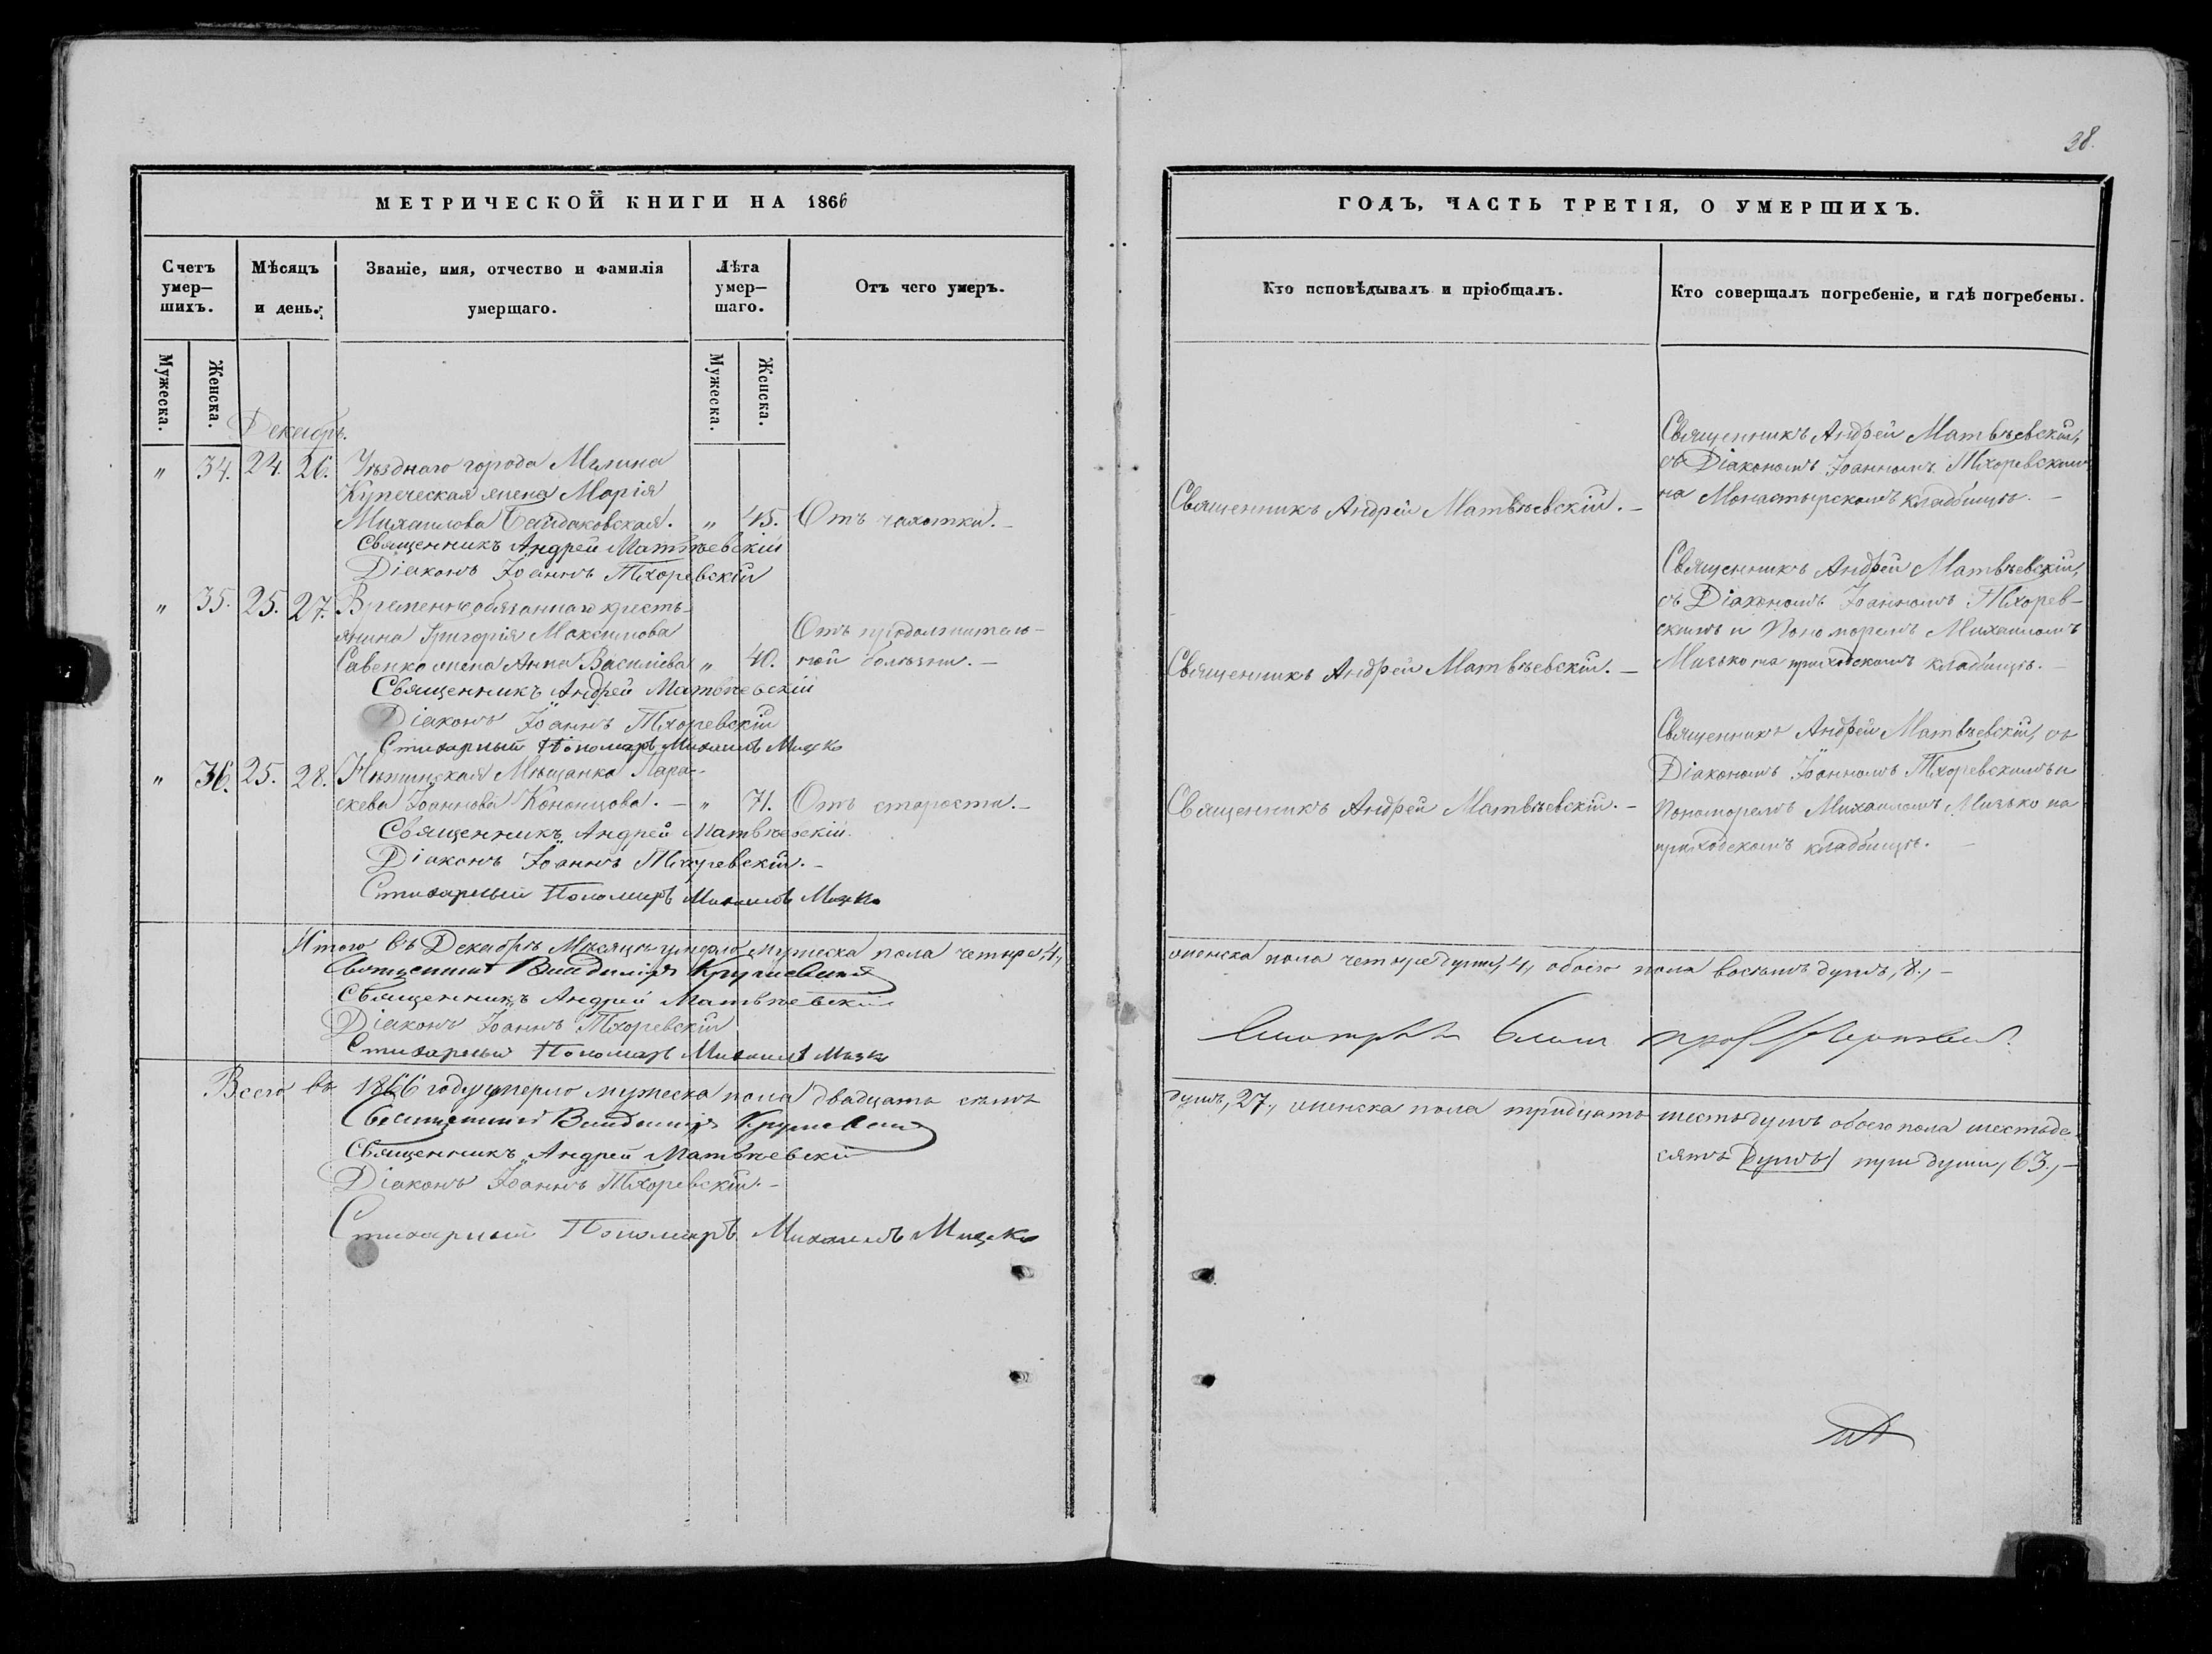 38.
МЕТРИЧЕСКОЙ КНИГИ НА 1866
Счетъ умер-шихъ.
Мѣсяцъ и день.
Званіе, имя, отчество и фамилія умершаго.
Лѣта умер-шаго.
Отъ чего умеръ.
Мужеска.
Женска.
Мужеска.
Женска.
Декабрь.
" 34. 24. 26. Уѣзднаго города
Купеческая жена Марія
Михаилова Байдаковская. " 45. Отъ чахотки. –
Священникъ Андрей Матвѣевскій
Діаконъ Іоаннъ Тхоревскій
" 35. 25. 27. Временнообязаннаго кресть-
янина Григорія Максимова
Отъ продолжитель-
Савенко жена Анна Василіева " 40. ной болѣзни. –
Священникъ Андрей Матвѣевскій
Діаконъ Іоаннъ Тхоревскій
Стихарный Пономарь Михаилъ Мизко
" 36. 25. 28. Нѣжинская Мѣщанка Пара-
скева Іоаннова Кононцова. – " 71. Отъ старости. –
Священникъ Андрей Матвѣевскій.
Діаконъ Іоаннъ Тхоревскій. –
Стихарный Пономарь Михаилъ Мизко
Итого въ Декабрѣ Мѣсяцѣ умерло мужеска пола четыре, 4,
Священникъ
Священникъ Андрей Матвѣевскій
Діаконъ Іоаннъ Тхоревскій
Стихарный Пономарь Михаилъ Мизко
Всего въ 1866 году умерло мужеска пола двадцать семь
Священникъ
Священникъ Андрей Матвѣевскій
Діаконъ Іоаннъ Тхоревскій. –
Стихарный Пономарь Михаилъ Мизко
ГОДЪ, ЧАСТЬ ТРЕТІЯ, О УМЕРШИХЪ.
Кто исповѣдывалъ и пріобщалъ.
Кто совершалъ погребеніе, и гдѣ погребены.
Священникъ Андрей Матвѣевскій,
съ Діакономъ Іоанномъ Тхоревскимъ
на Монастырскомъ кладбищѣ. –
Священникъ Андрей Матвѣевскій. –
Священникъ Андрей Матвѣевскій,
съ Діакономъ Іоанномъ Тхорев-
скимъ и Пономаремъ Михаиломъ
Мизько на приходскомъ кладбищѣ. –
Священникъ Андрей Матвѣевскій. –
Священникъ Андрей Матвѣевскій, съ
Діакономъ Іоанномъ Тхоревскимъ и
Пономаремъ Михаиломъ Мизько на
приходскомъ кладбищѣ. –
Священникъ Андрей Матвѣевскій. –
женска пола четыре души, 4, обоего пола восемь душъ, 8, –
душъ, 27, женска пола тридцать шесть душъ обоего пола шестьде-
сятъ [душъ] три души, 63, –